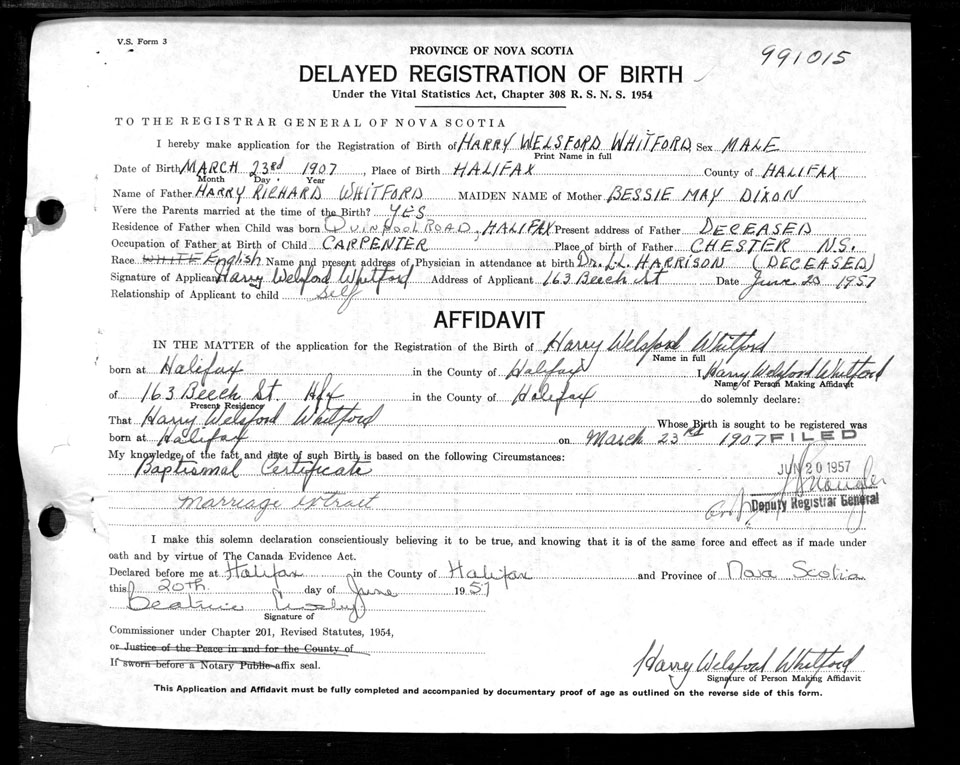 V.S. Form 3
991015
PROVINCE OF NOVA SCOTIA
DELAYED REGISTRATION OF BIRTH
Under the Vital Statistics Act, Chapter 308 R. S. N. S. 1954
TO THE REGISTRAR GENERAL OF NOVA SCOTIA
I hereby make application for the Registration of Birth of HARRY WELSFORD WHITFORD Sex MALE
Print Name in full
Date of Birth MARCH 23rd 1907, Place of Birth HALIFAX County of HALIFAX
Month Day Year
Name of Father HARRY RICHARD WHITFORD MAIDEN NAME of Mother BESSIE MAY DIXON
Were the Parents married at the time of the Birth? YES
Residence of Father when Child was born QUINPOOL ROAD, HALIFAX Present address of Father DECEASED
Occupation of Father at Birth of Child CARPENTER Place of birth of Father CHESTER N.S.
Race WHITE English Name and present address of Physician in attendance at birth Dr. L.L. HARRISON (DECEASED)
Signature of Applicant Harry Welsford Whitford Address of Applicant 163 Beech St Date June 20 1957
Relationship of Applicant to child self
AFFIDAVIT
IN THE MATTER of the application for the Registration of the Birth of Harry Welsford Whitford
Name in full
born at Halifax in the County of Halifax I Harry Welsford Whitford
Name of Person Making Affidavit
of 163 Beech St. Hfx in the County of Halifax do solemnly declare:
Present Residence
That Harry Welsford Whitford Whose Birth is sought to be registered was
born at Halifax on March 23rd 1907 FILED
My knowledge of the fact and date of such Birth is based on the following Circumstances:
Baptismal Certificate
JUN 20 1957
marriage extract
Deputy Registrar General
I make this solemn declaration conscientiously believing it to be true, and knowing that it is of the same force and effect as if made under
oath and by virtue of The Canada Evidence Act.
Declared before me at Halifax in the County of Halifax and Province of Nova Scotia
this 20th day of June 1957
Beatrice
Signature of
Commissioner under Chapter 201, Revised Statutes, 1954,
or Justice of the Peace in and for the County of
If sworn before a Notary Public affix seal.
Harry Welsford Whitford
Signature of Person Making Affidavit
This Application and Affidavit must be fully completed and accompanied by documentary proof of age as outlined on the reverse side of this form.